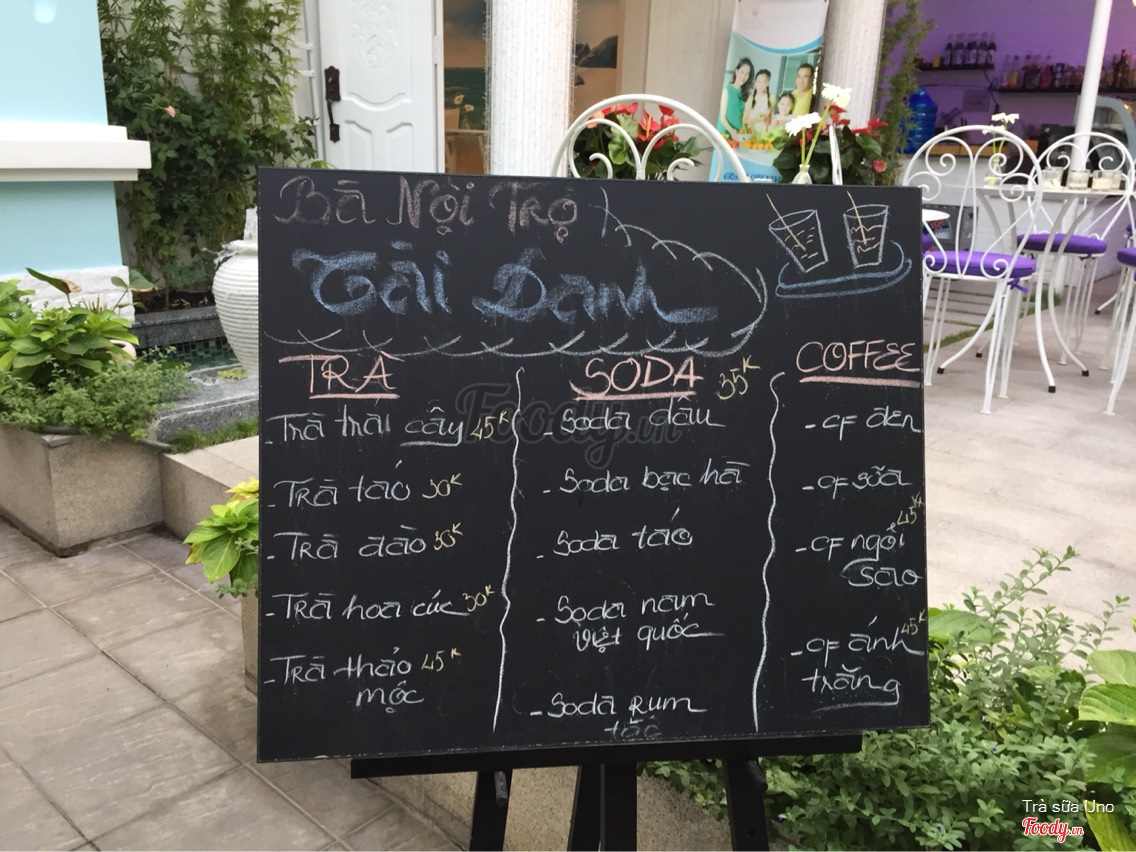 Bà Nội Trợ
Tài Danh
TRÀ
- Trà trái cây 45K
- Trà táo 30K
- Trà đào 30K
- Trà hoa cúc 30K
- Trà thảo 45K
mộc
SODA 35K
- Soda dâu
- Soda bạc hà
- Soda táo
- Soda nam
việt quốc
- Soda Rum
tắc
COFFEE
- cf đen
- cf sữa
- cf ngôi 45K
sao
- cf ánh 45K
trăng
Foody.vn
Trà sữa Uno
Foody.vn